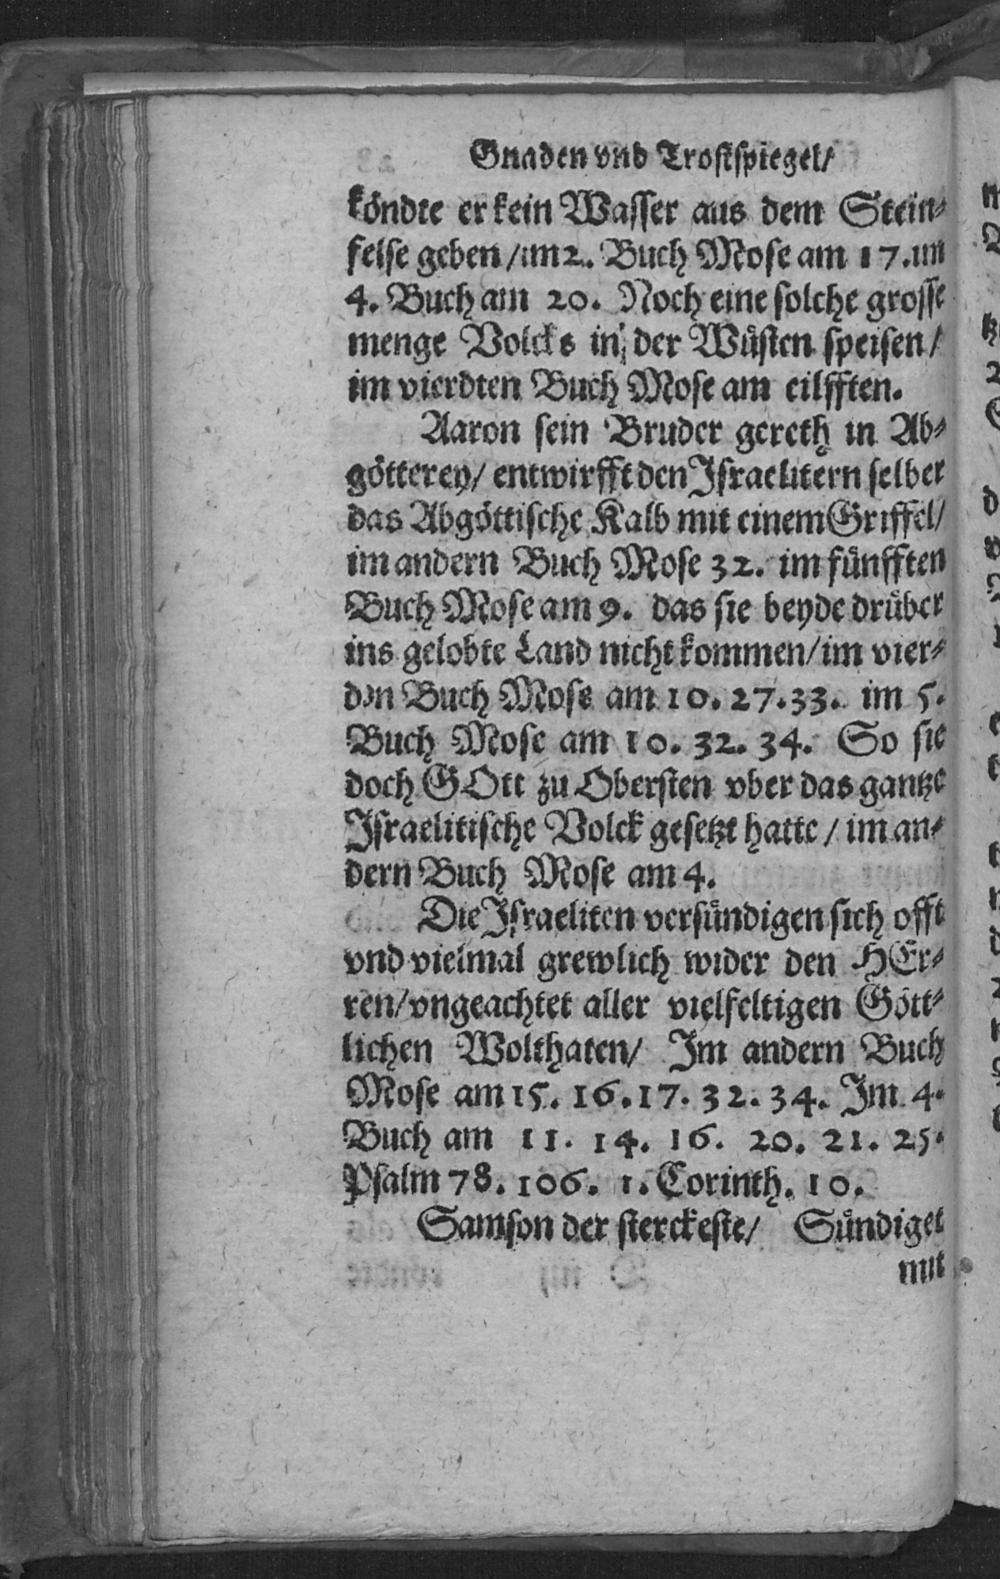 Gnaden vnd Trostspiegel/
köndte er kein Wasser aus dem Stein-
felse geben /im 2. Buch Mose am 17. im
4. Buch am 20. Noch eine solche grosse
menge Volcks in der Wüsten speisen/
im vierdten Buch Mose am eilfften.
Aaron sein Bruder gereth in Ab-
götterey/ entwirfft den Israelitern selber
das Abgöttische Kalb mit einem Griffel/
im andern Buch Mose 32. im fünfften
Buch Mose am 9. das sie beyde drüber
ins gelobte Land nicht kommen/ im vier-
den Buch Mose am 10. 27. 33. im 5.
Buch Mose am 10. 32. 34. So sie
doch GOtt zu Obersten vber das gantze
Israelitische Volck gesetzt hatte / im an-
dern Buch Mose am 4.
Die Israeliten versündigen sich offt
vnd vielmal grewlich wider den HEr-
ren/ vngeachtet aller vielfeltigen Gött-
lichen Wolthaten/ Im andern Buch
Mose am 15. 16. 17. 32. 34. Im 4.
Buch am 11. 14. 16. 20. 21. 25.
Psalm 78. 106. 1. Corinth. 10.
Samson der sterckeste/ Sündiget
mit